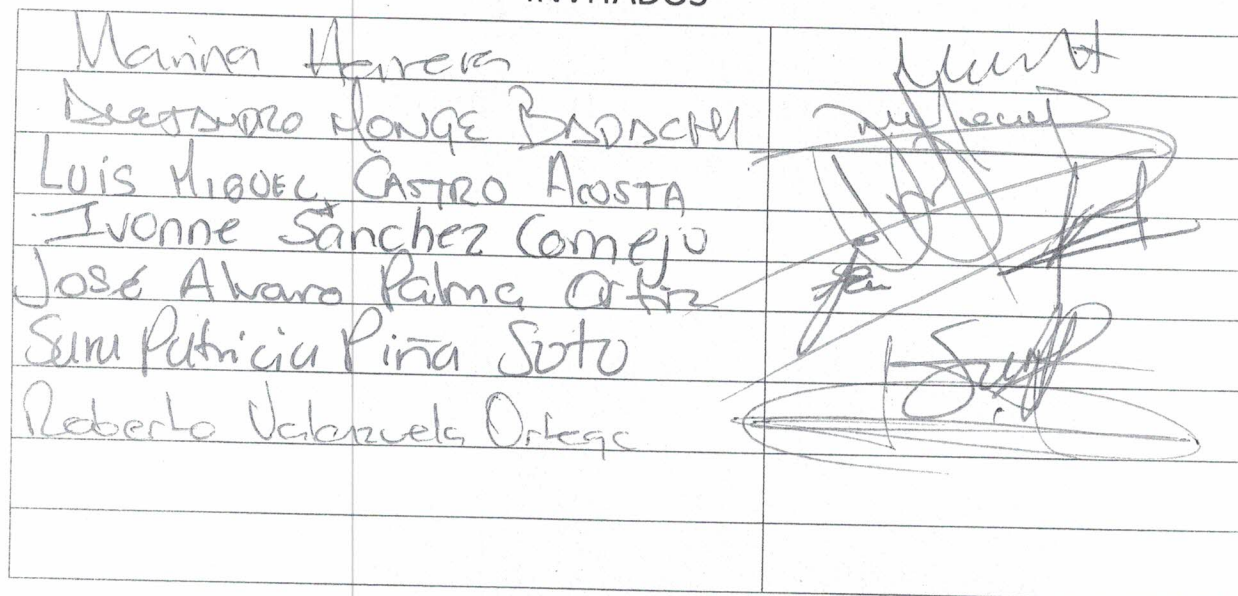 INVITADOS
Marina Herrera
Alejandro Monge Badachi
Luis Miguel Castro Acosta
Ivonne Sánchez Cornejo
José Alvaro Palma Ortiz
Sara Patricia Piña Soto
Roberto Valenzuela Ortega